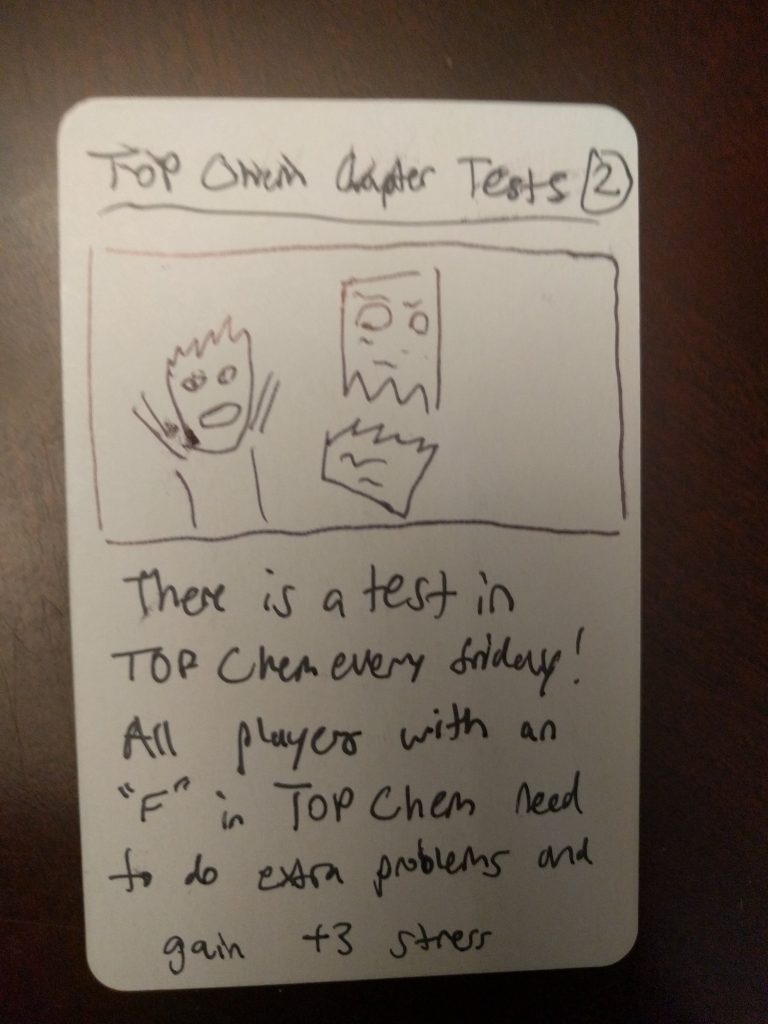 TOP Chem Chapter Tests 2
There is a test in
TOP Chem every friday!
All players with an
"F" in TOP Chem need
to do extra problems and
gain +3 stress